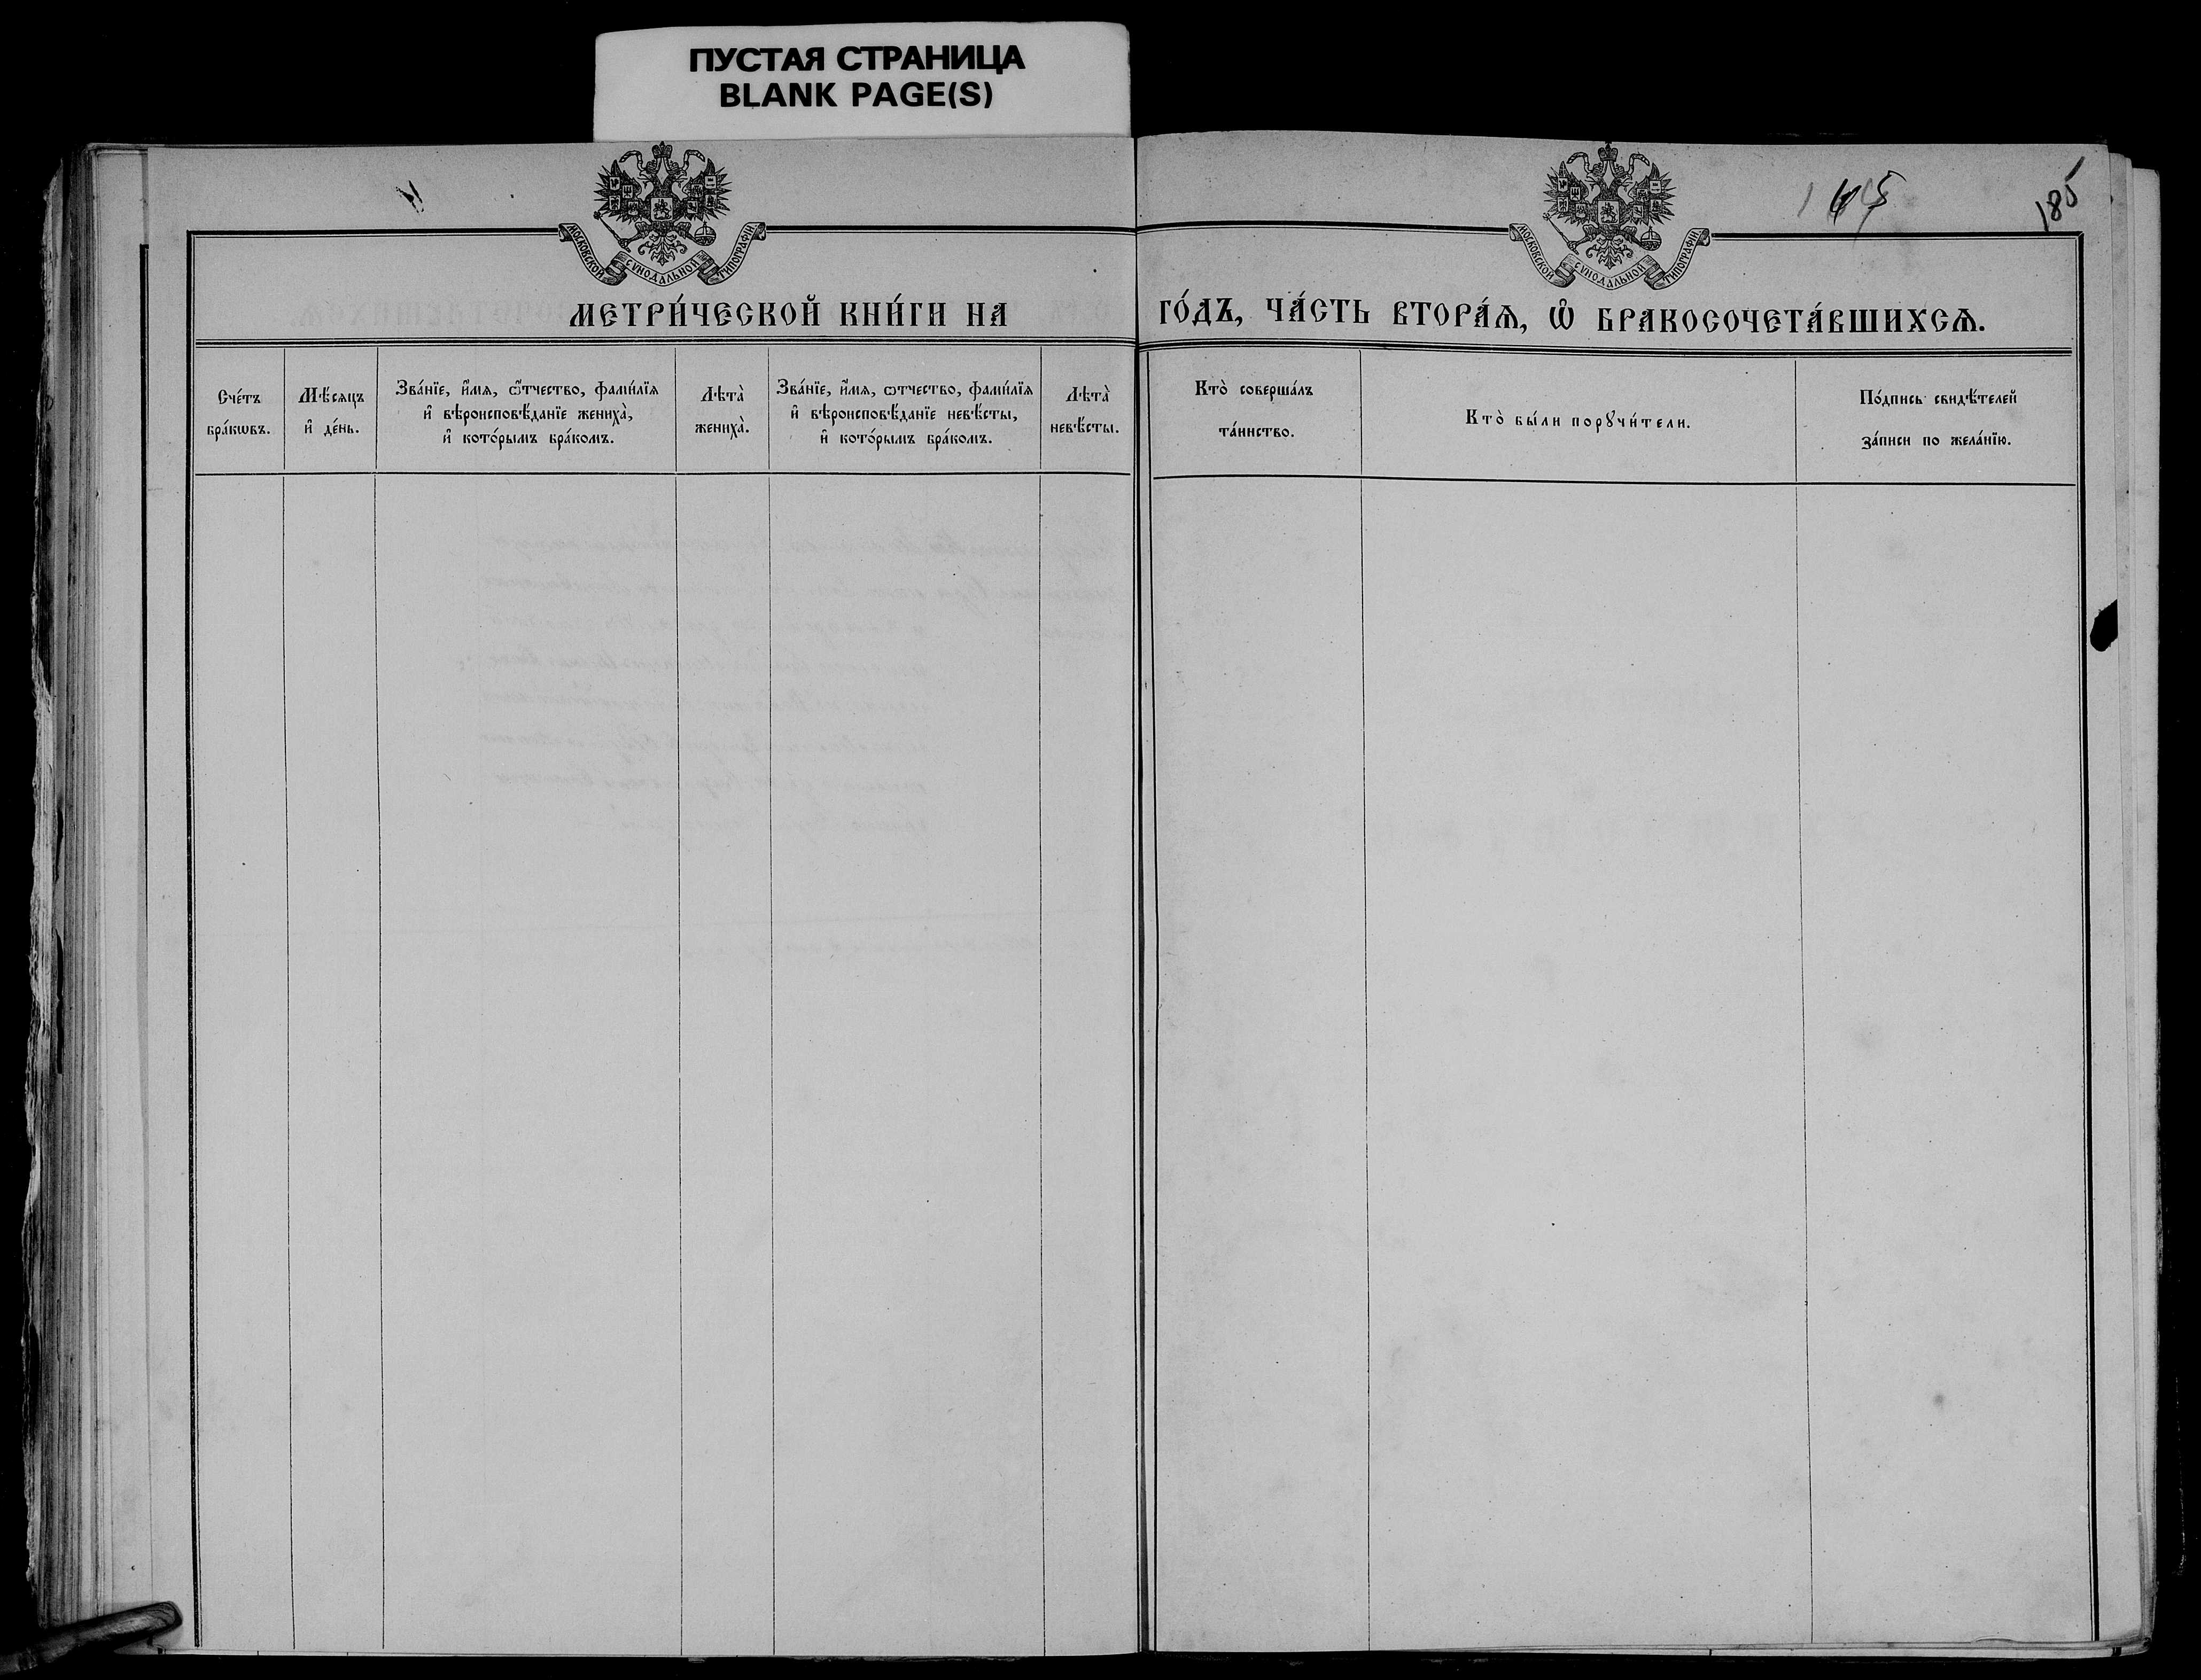 ПУСТАЯ СТРАНИЦА
BLANK PAGE(S)
МОСКОВСКОЙ СѴНОДАЛЬНОЙ ТИПОГРАФІИ
МОСКОВСКОЙ СѴНОДАЛЬНОЙ ТИПОГРАФІИ
185
МЕТРИ́ЧЕСКОЙ КНИ́ГИ НА ГО́ДЪ, ЧА́СТЬ ВТОРА́Ѧ, Ѽ БРАКОСОЧЕТА́ВШИХСѦ.
Сче́тъ
бра́кѡвъ.
Мѣ́сяцъ
и҆ де́нь.
Зва́нїе, и҆́мя, ѻ҆́тчество, фами́лїя
и҆ вѣроисповѣ́данїе жениха̀,
и҆ кото́рымъ бра́комъ.
Лѣта̀
жениха̀.
Зва́нїе, и҆́мя, ѻтчество, фами́лїя
и҆ вѣроисповѣ́данїе невѣ́сты,
и҆ кото́рымъ бра́комъ.
Лѣта̀
невѣ́сты.
Кто̀ соверша́лъ
та́инство.
Кто̀ бы́ли порꙋчи́тели.
По́дпись свидѣ́телей
за́писи по жела́нїю.